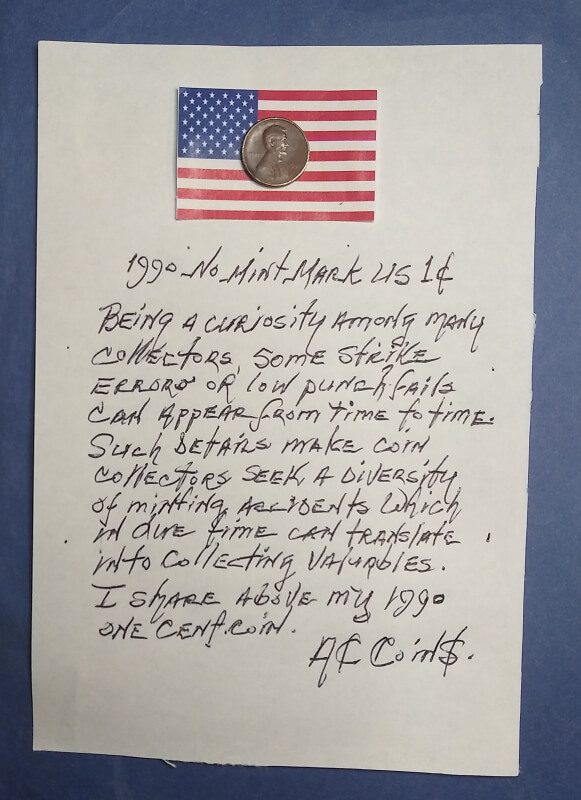 1990 No Mint Mark US 1¢
Being a curiosity among many
collectors, some strike
errors or low punch fails
can appear from time to time.
Such details make coin
collectors seek a diversity
of minting accidents which
in due time can translate
into collecting valuables.
I share above my 1990
one cent coin.
A¢ Coin$.